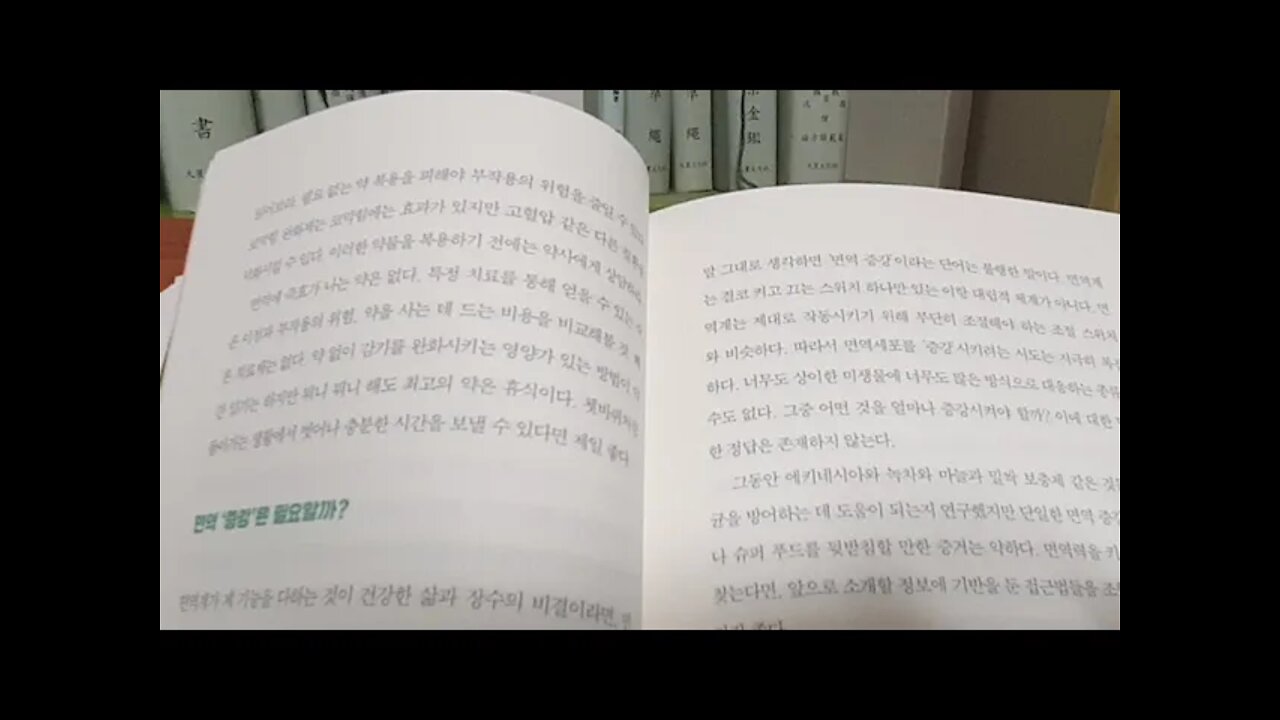 書
準
繩
準
繩
金
鑑
필요 없는 약 복용을 피해야 부작용의 위험을 줄일 수 있다
코막힘 완화제는 코막힘에는 효과가 있지만 고혈압 같은 다른
수 있다. 이러한 약물을 복용하기 전에는 약사에게 상담하라.
면역에 특효가 나는 약은 없다. 특정 치료를 통해 얻을 수 있는
은 이점과 부작용의 위험, 약을 사는 데 드는 비용을 비교해볼 것
은 치료제는 없다. 약 없이 감기를 완화시키는 영양가 있는 방법이
하지만 뭐니 뭐니 해도 최고의 약은 휴식이다. 쳇바퀴처럼
돌아가는 생활에서 벗어나 충분한 시간을 보낼 수 있다면 제일 좋다
면역 '증강'은 필요할까?
면역계가 제 기능을 다하는 것이 건강한 삶과 장수의 비결이라면,
말 그대로 생각하면 '면역 증강'이라는 단어는 불행한 말이다. 면역계
는 결코 켜고 끄는 스위치 하나만 있는 이항 대립적 체계가 아니다. 면
역계는 제대로 작동시키기 위해 부단히 조절해야 하는 조절 스위치
와 비슷하다. 따라서 면역세포를 '증강'시키려는 시도는 지극히
하다. 너무도 상이한 미생물에 너무도 많은 방식으로 대응하는 종류
수도 없다. 그중 어떤 것을 얼마나 증강시켜야 할까? 이에 대한
한 정답은 존재하지 않는다.
그동안 에키네시아와 녹차와 마늘과 밀싹 보충제 같은
균을 방어하는 데 도움이 되는지 연구했지만 단일한 면역 증강
나 슈퍼 푸드를 뒷받침할 만한 증거는 약하다. 면역력을
찾는다면, 앞으로 소개할 정보에 기반을 둔 접근법들을
좋다.